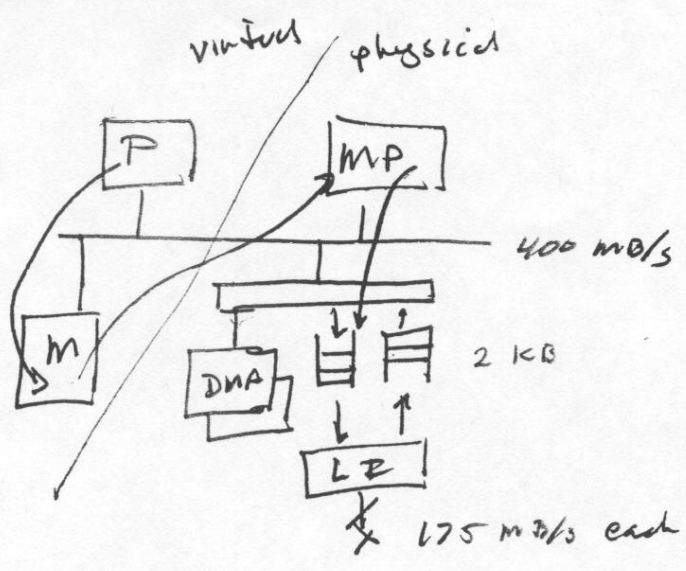 virtual
physical
P
MP
400 MB/s
M
DMA
2 KB
LI
175 MB/s each